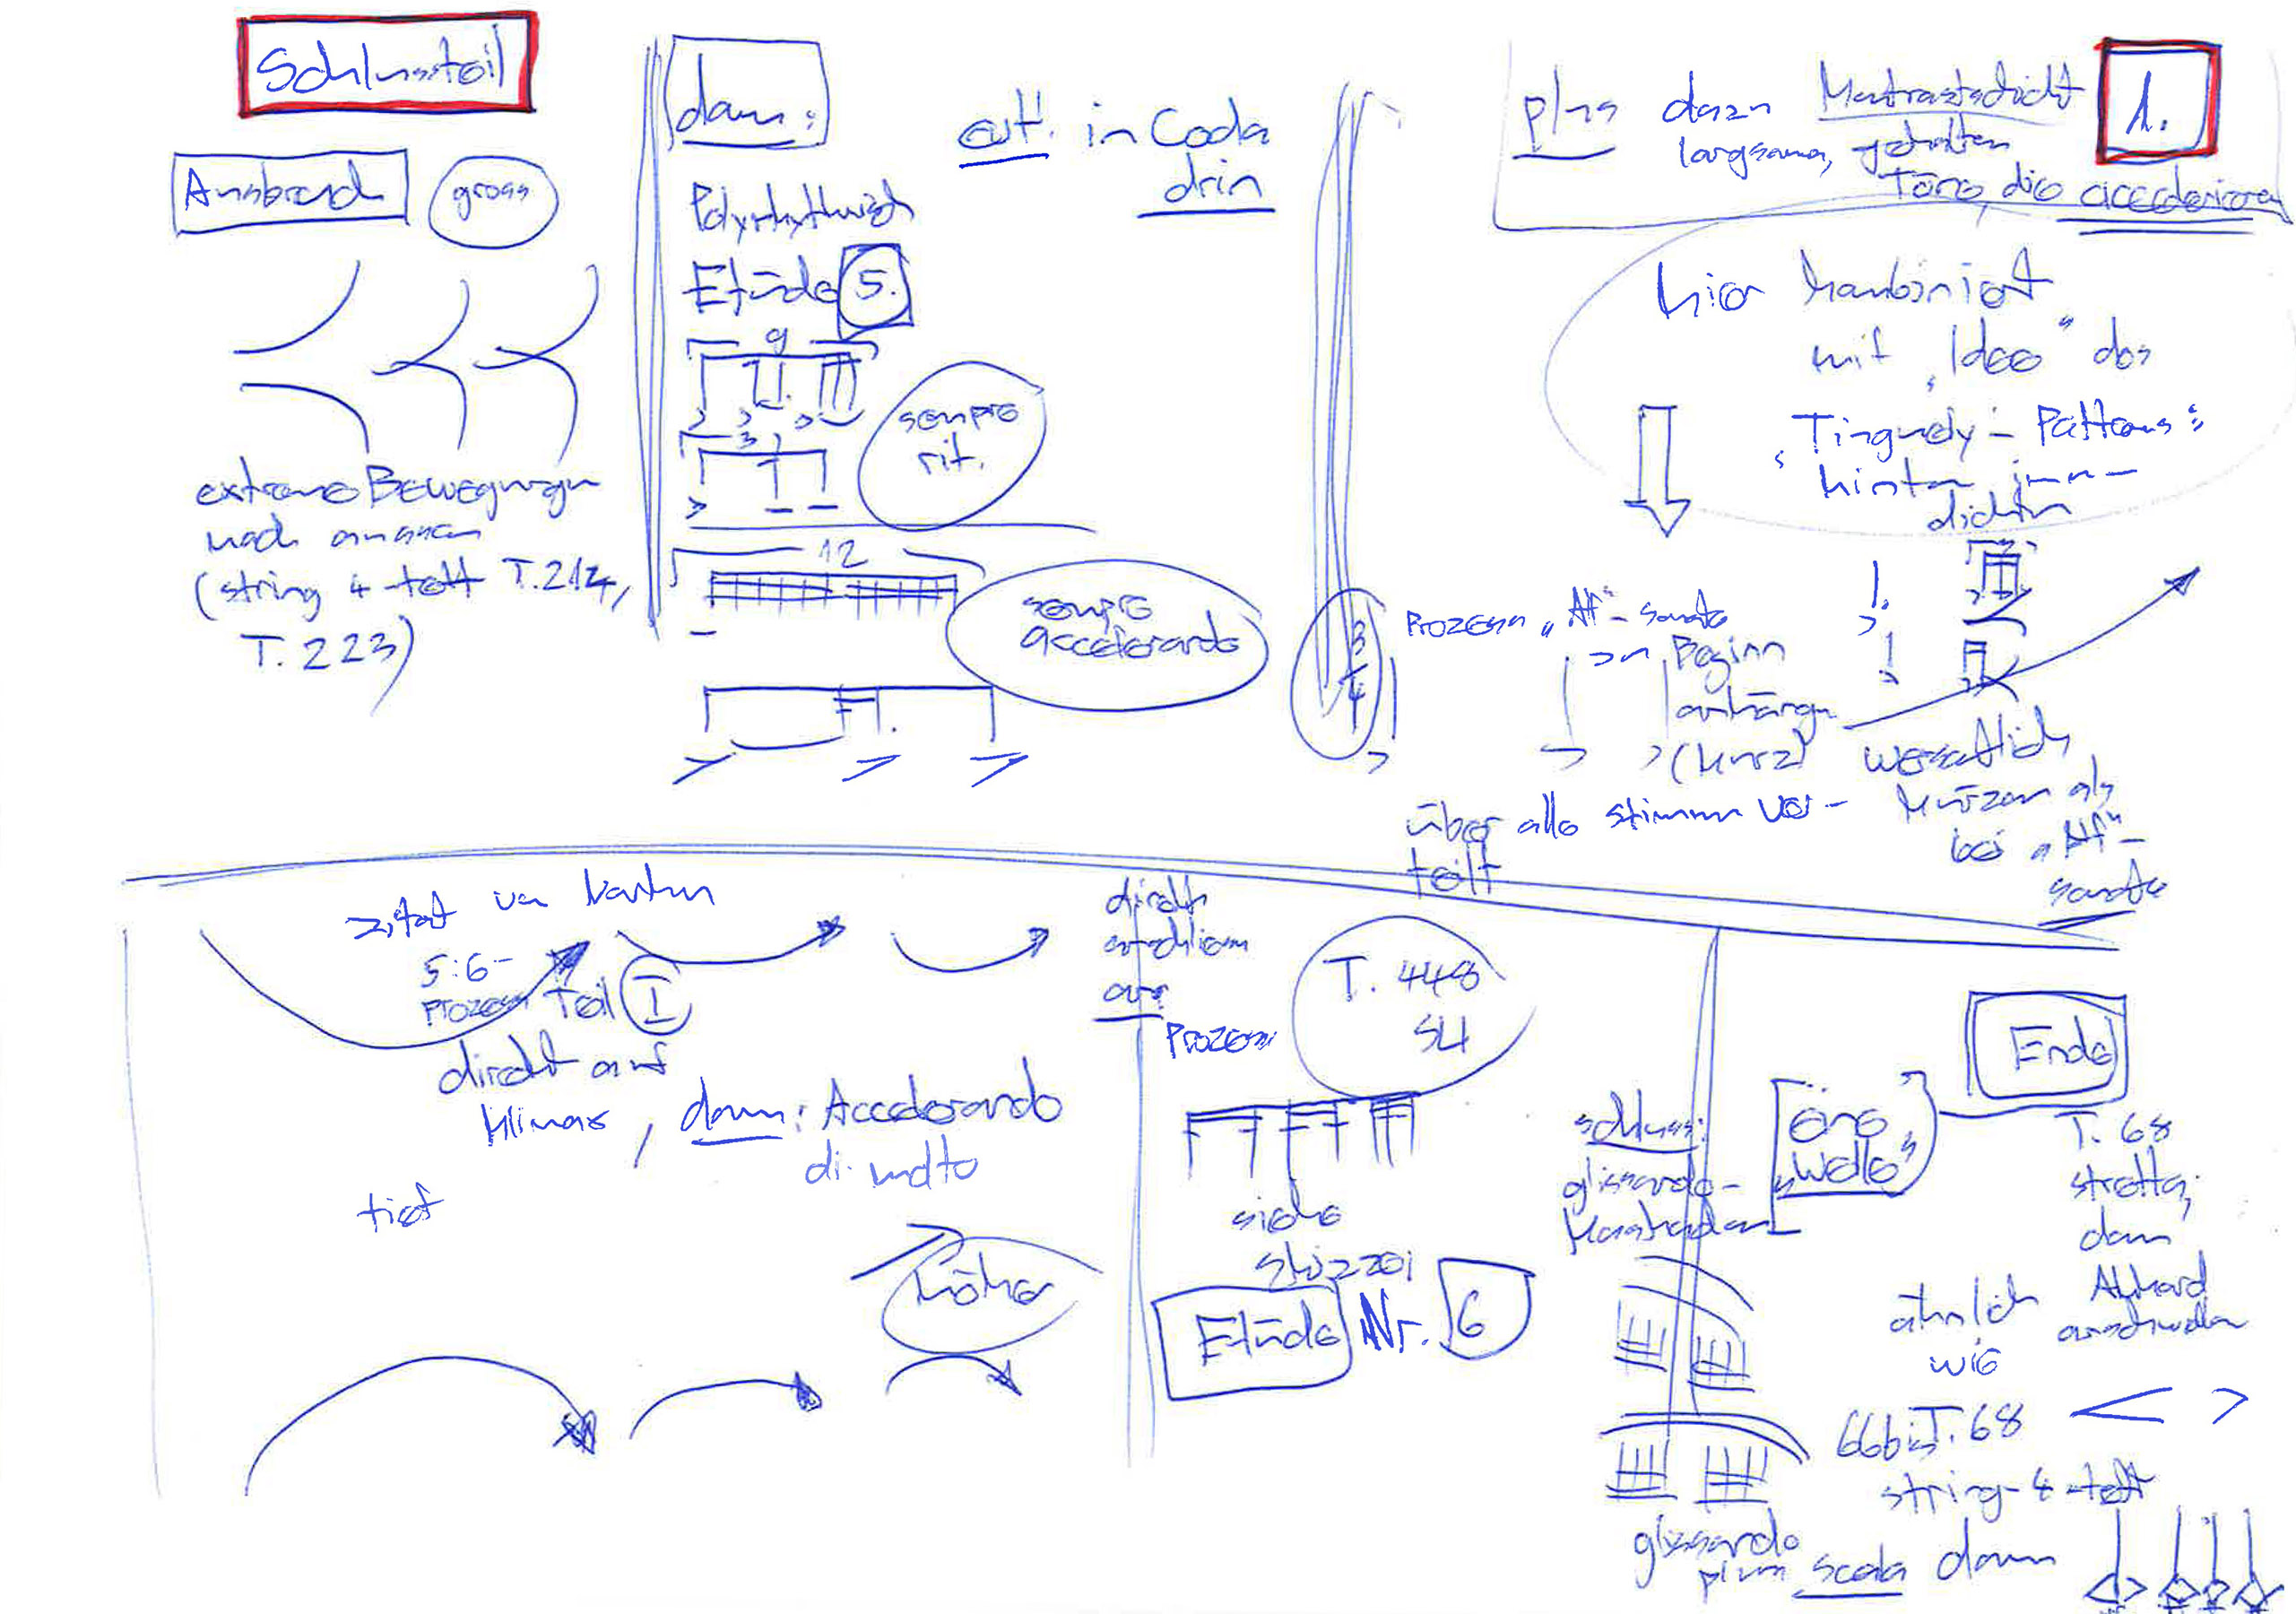 Schlussteil
Ausbruch
gross
extreme Bewegungen
nach aussen
(string 4-tett T.214,
T.223)
dann:
evtl. in Coda
drin
Polyrhythmisch
Etüde 5.
9
sempre
rit.
3
12
sempre
accelerando
plus dazu Kontrastschicht
langsame, gehalten
Töne, die accelerieren
1.
hier kombiniert
mit "Idee" des
"Tinguely-Patterns":
hinten immer
dichter
3
4
Prozess "Alf"-Sonate
zu Beginn
anhängen
(kurz)
wesentlich
kürzer als
bei "Alf"-
Sonate
über alle Stimmen ver-
teilt
Zitat von
5:6-
Prozess Teil I
direkt auf
Klimax, dann: Accelerando
di molto
tief
höher
direkt
anschliessen
Prozess
T. 448
SH
siehe
Skizze:
Etüde Nr. 6
Schluss:
glissando-
Kaskaden
eine
"Welle"
Ende
T. 68
stretta;
dann
Akkord
anschwellen
ähnlich
wie
66 bis T. 68
string-4-tett
glissando
plus scala dann